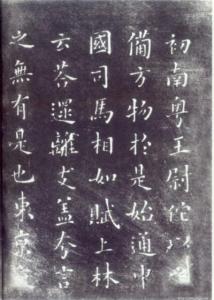 初南粵王尉佗以之
備方物於是始通中
國司馬相如賦上林
云荅遝離支蓋夸言
之無有是也東京